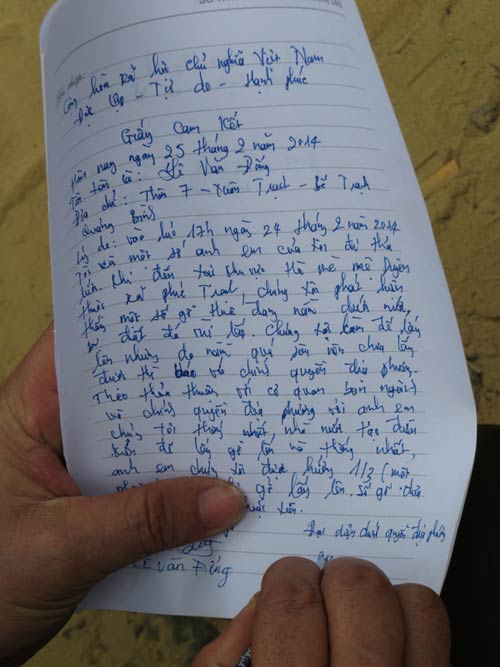 Cộng hòa xã hội chủ nghĩa Việt Nam
Độc lập - Tự do - Hạnh phúc
Giấy Cam Kết
Hôm nay ngày 25 tháng 2 năm 2014
Tôi tên là: Lê Văn Đống
Địa chỉ: Thôn 7 - Xuân Trạch - Bố Trạch
Quảng Bình
Lý do: vào lúc 17h ngày 24 tháng 2 năm 2014
Tôi và một số anh em của tôi đi thả
lưới. Khi đến tại khu vực
thuộc xã phúc Trạch, chúng tôi phát hiện
thấy một số gỗ đang nằm dưới nước
chúng tôi để lấy
lên nhưng do nằm quá sâu nên chưa lấy
được thì báo với chính quyền địa phương.
Theo thỏa thuận với cơ quan ban ngành
và chính quyền địa phương với anh em
chúng tôi thống nhất nhà nước tạo điều
kiện để lấy gỗ lên và thống nhất,
anh em chúng tôi được hưởng 1/3 (một
gỗ lấy lên. số gỗ
Đại diện chính quyền địa phương
LÊ Văn Đống